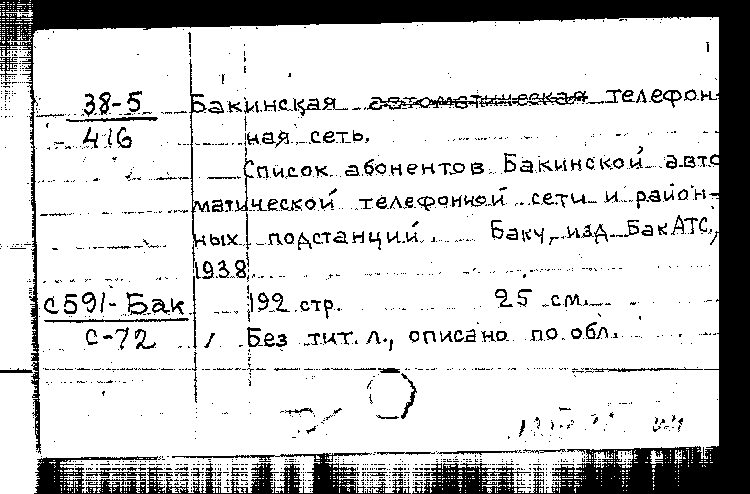 38-5
416
Бакинская автоматическая телефон-
ная сеть.
Список абонентов Бакинской авто
матической телефонной сети и район-
ных подстанций. Баку, изд. БакАТС,
1938
с591-Бак
с-72
192 стр. 25 см.
Без тит. л., описано по обл.